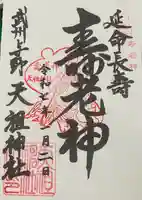 延命長寿
寿老神
令和七年一月二日
武州与野
天祖神社